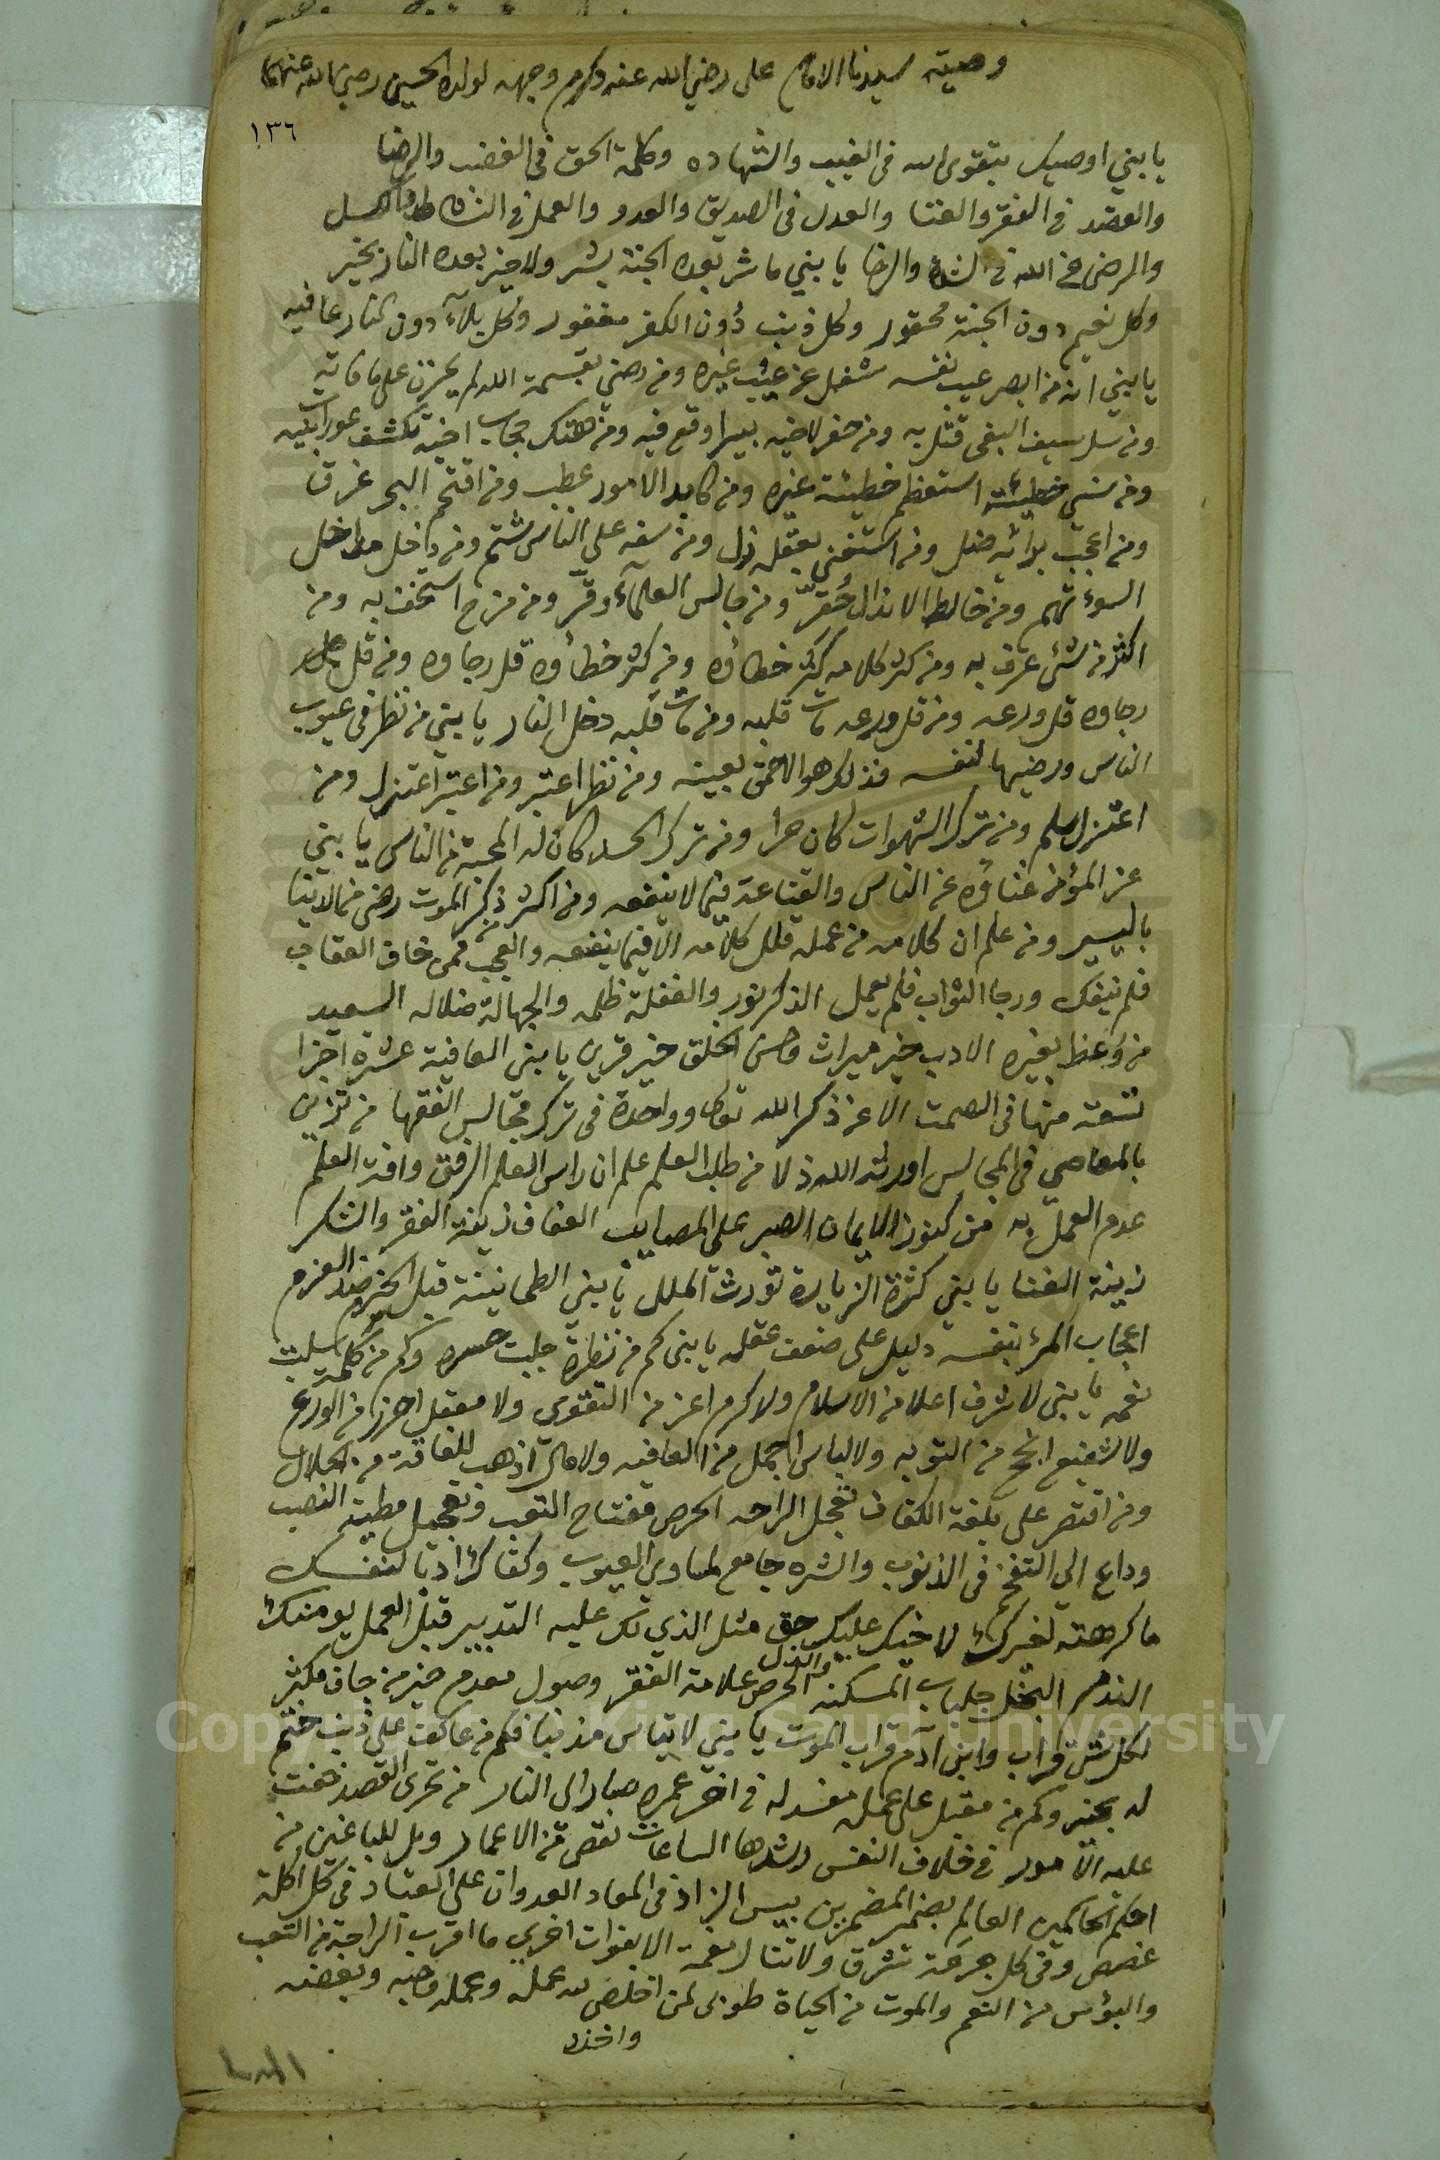 وصية سيدنا الامام على رضي الله عنه وكرم وجهه لولده الحسين رضي الله عنهما
١٣٦
يا بني اوصيك بتقوى الله فى الغيب والشهاده وكلمة الحق فى الغضب والرضا
والقصد فى الفقر والغنا والعدل فى الصديق والعدو والعمل فى النشاط والكسل
والرضى عن الله فى الشدة والرخا يا بني ما شر بعده الجنة بشر ولا خير بعده النار بخير
وكل نعيم دون الجنة محقور وكل ذنب دون الكفر مغفور وكل بلاء دون النار عافيه
يا بني انه من ابصر عيب نفسه شغل عن عيب غيره ومن رضي بقسمة الله لم يحزن على ما فاته
ومن سل سيف البغى قتل به ومن حفر لاخيه بيرا وقع فيه ومن هتك حجاب اخيه تكشف عورات بيته
ومن نسي خطيئته استعظم خطيئة غيره ومن كابد الامور عطب ومن اقتحم البحر غرق
ومن اعجب برائه ضل ومن استغنى بعقله زل ومن سفه على الناس شتم ومن داخل مداخل
السوء تهم ومن خالط الانذال حُقر ومن جالس العلماء وقّر ومن مزح استخف به ومن
اكثر من شئ عرف به ومن كثر كلامه كثر خطاؤه ومن كثر خطاؤه قل رجاوه ومن قل
رجاوه قل ورعه ومن قل ورعه مات قلبه ومن مات قلبه دخل النار يا بني من نظر فى عيوب
الناس ورضيها لنفسه فذلك هو الاحمق بعينه ومن نظر اعتبر ومن اعتبر اعتزل ومن
اعتزل سلم ومن ترك الشهوات كان حرا ومن ترك الحسد كان له المحبة من الناس يا بني
عز المؤمن غناؤه عن الناس والقناعة فيما لا ينفعه ومن اكثر ذكر الموت رضى من الدنيا
باليسير ومن علم ان كلامه من عمله قلل كلامه الا فيما ينفعه والعجب ممن خاف العقاب
فلم ينفك ورجا الثواب فلم يعمل الذكر نور والغفلة ظلمه والجهالة ضلاله السعيد
من وُعظ بغيره الادب خير ميراث وحسن الخلق خير قرين يا بنى العافية عشرة اجزا
تسعة منها فى الصمت الا عن ذكر الله تعالى وواحدة فى ترك مجالس الفقها من تزين
بالمعاصي فى المجالس اورثه الله ذلا من طلب العلم علم ان راس العلم الرفق وافة العلم
عدم العمل به من كنوز الايمان الصبر على المصايب العفاف زينة الفقر والشكر
زينة الغنا يا بني كثرة الزيارة تورث الملل يا بني الطمانينة قبل الخبر ضد العزم
اعجاب المرء بنفسه دليل على ضعف عقله يا بنى كم من نظرة جلبت حسره وكم من كلمة سلبت
نعمه يا بنى لا شرف اعلا من الاسلام ولا كرم اعز من التقوى ولا معقل احرز من الورع
ولا شفيع انجح من التوبه ولا لباس اجمل من العافيه ولا مال اذهب للفاقة من الحلال
ومن اقتصر على بلغة الكفاف تعجل الراحه الحرص مفتاح التعب وتعجيل مطية النصب
وداع الي التقحم فى الذنوب والشره جامع لمساوي العيوب وكفاك ادبا لنفسك
ما كرهته لغيرك لاخيك عليك حق مثل الذي لك عليه التدبير قبل العمل يومنك
الندم البخل جلباب المسكنه والذل الحرص علامة الفقر وصول معدم خير من جاف مكثر
لكل شئ قراب وابن ادم قراب الموت يا بني لا تياس مذنبا فكم من عاكف على ذنب ختم
له بخير وكم من مقبل على عمله مفسد له فى اخر عمره صار الى النار من تحرى القصد خفت
عليه الامور فى خلاف النفس رشدها الساعات تنقص من الاعمار ويل للباغين من
احكم الحاكمين العالم بضمير المضمرين بيس الزاد فى المعاد العدوان على العباد فى كل اكلة
غصص وفى كل جرعة شرق ولا تنال نعمة الا بفوات اخرى ما اقرب الراحة من التعب
والبؤس من النعم والموت من الحياة طوبى لمن اخلص لله عمله وعمله وحبه وبغضه
واخذه